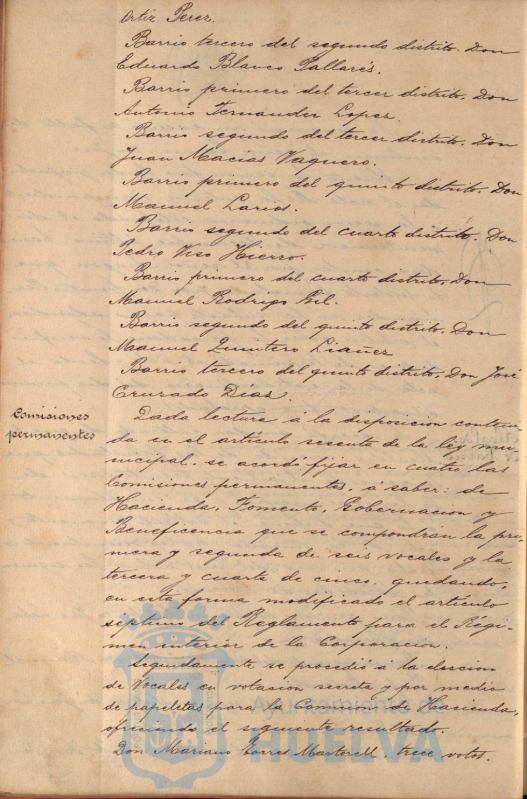 Ortiz Perez.
Barrio tercero del segundo distrito. Don
Eduardo Blanco Pallarés.
Barrio primero del tercer distrito. Don
Antonio Fernandez Lopez.
Barrio segundo del tercer distrito. Don
Juan Macias Vaquero.
Barrio primero del quinto distrito. Don
Manuel Larios.
Barrio segundo del cuarto distrito. Don
Pedro Viso Hierro.
Barrio primero del cuarto distrito. Don
Manuel Rodrigo Gil.
Barrio segundo del quinto distrito. Don
Manuel Quintero Liañez
Barrio tercero del quinto distrito. Don José
Cruzado Dias.
Comisiones
permanentes
Dada lectura á la disposicion conteni-
da en el artículo sesenta de la ley mu-
nicipal, se acordó fijar en cuatro las
Comisiones permanentes, á saber: de
Hacienda, Fomento, Gobernacion y
Beneficencia que se compondrán la pri-
mera y segunda de seis vocales y la
tercera y cuarta de cinco, quedando,
en esta forma modificado el artículo
séptimo del Reglamento para el Régi-
men interior de la Corporacion.
Seguidamente se procedió á la eleccion
de Vocales en votacion secreta y por medio
de papeletas para la Comision de Hacienda,
ofreciendo el siguiente resultado.
Don Mariano Torres Martorell, trece votos.
Ayuntamiento de
HUELVA